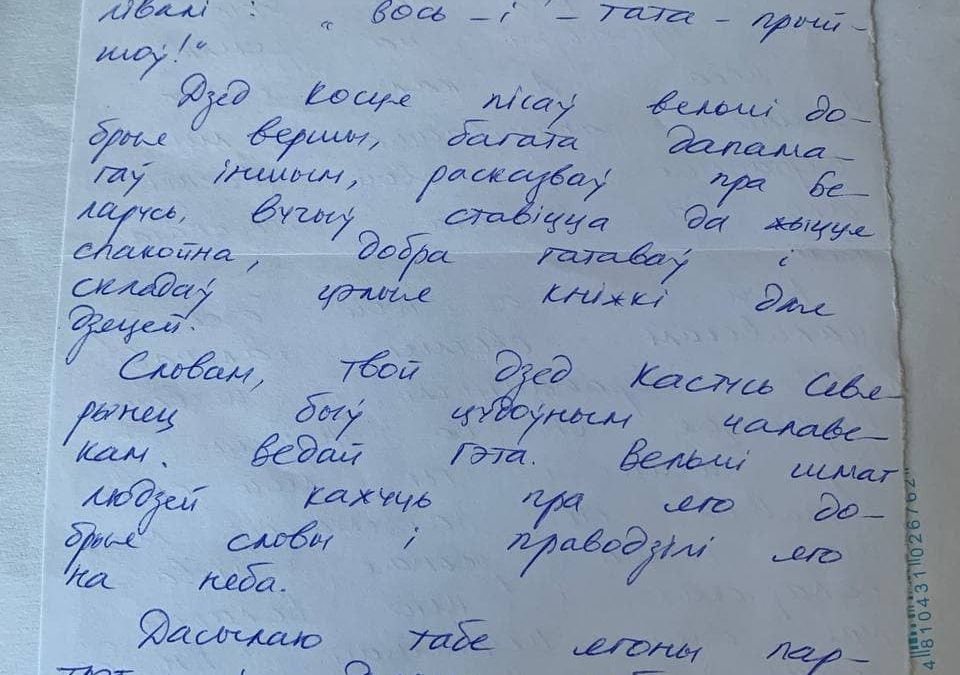 лівалі: "вось-і-тата-прый-
шоў!"
Дзед Косця пісаў вельмі до-
брыя вершы, багата дапама-
гаў іншым, расказваў пра Бе-
ларусь, вучыў ставіцца да жыцця
спакойна, добра гатаваў і
складаў цэлыя кніжкі для
дзецей.
Словам, твой дзед Кастусь Севя-
рынец быў цудоўным чалаве-
кам. Ведай гэта. Вельмі шмат
людзей кажуць пра яго до-
брыя словы і праводзілі яго
на неба.
Дасылаю табе ягоны пар-
4810431026762